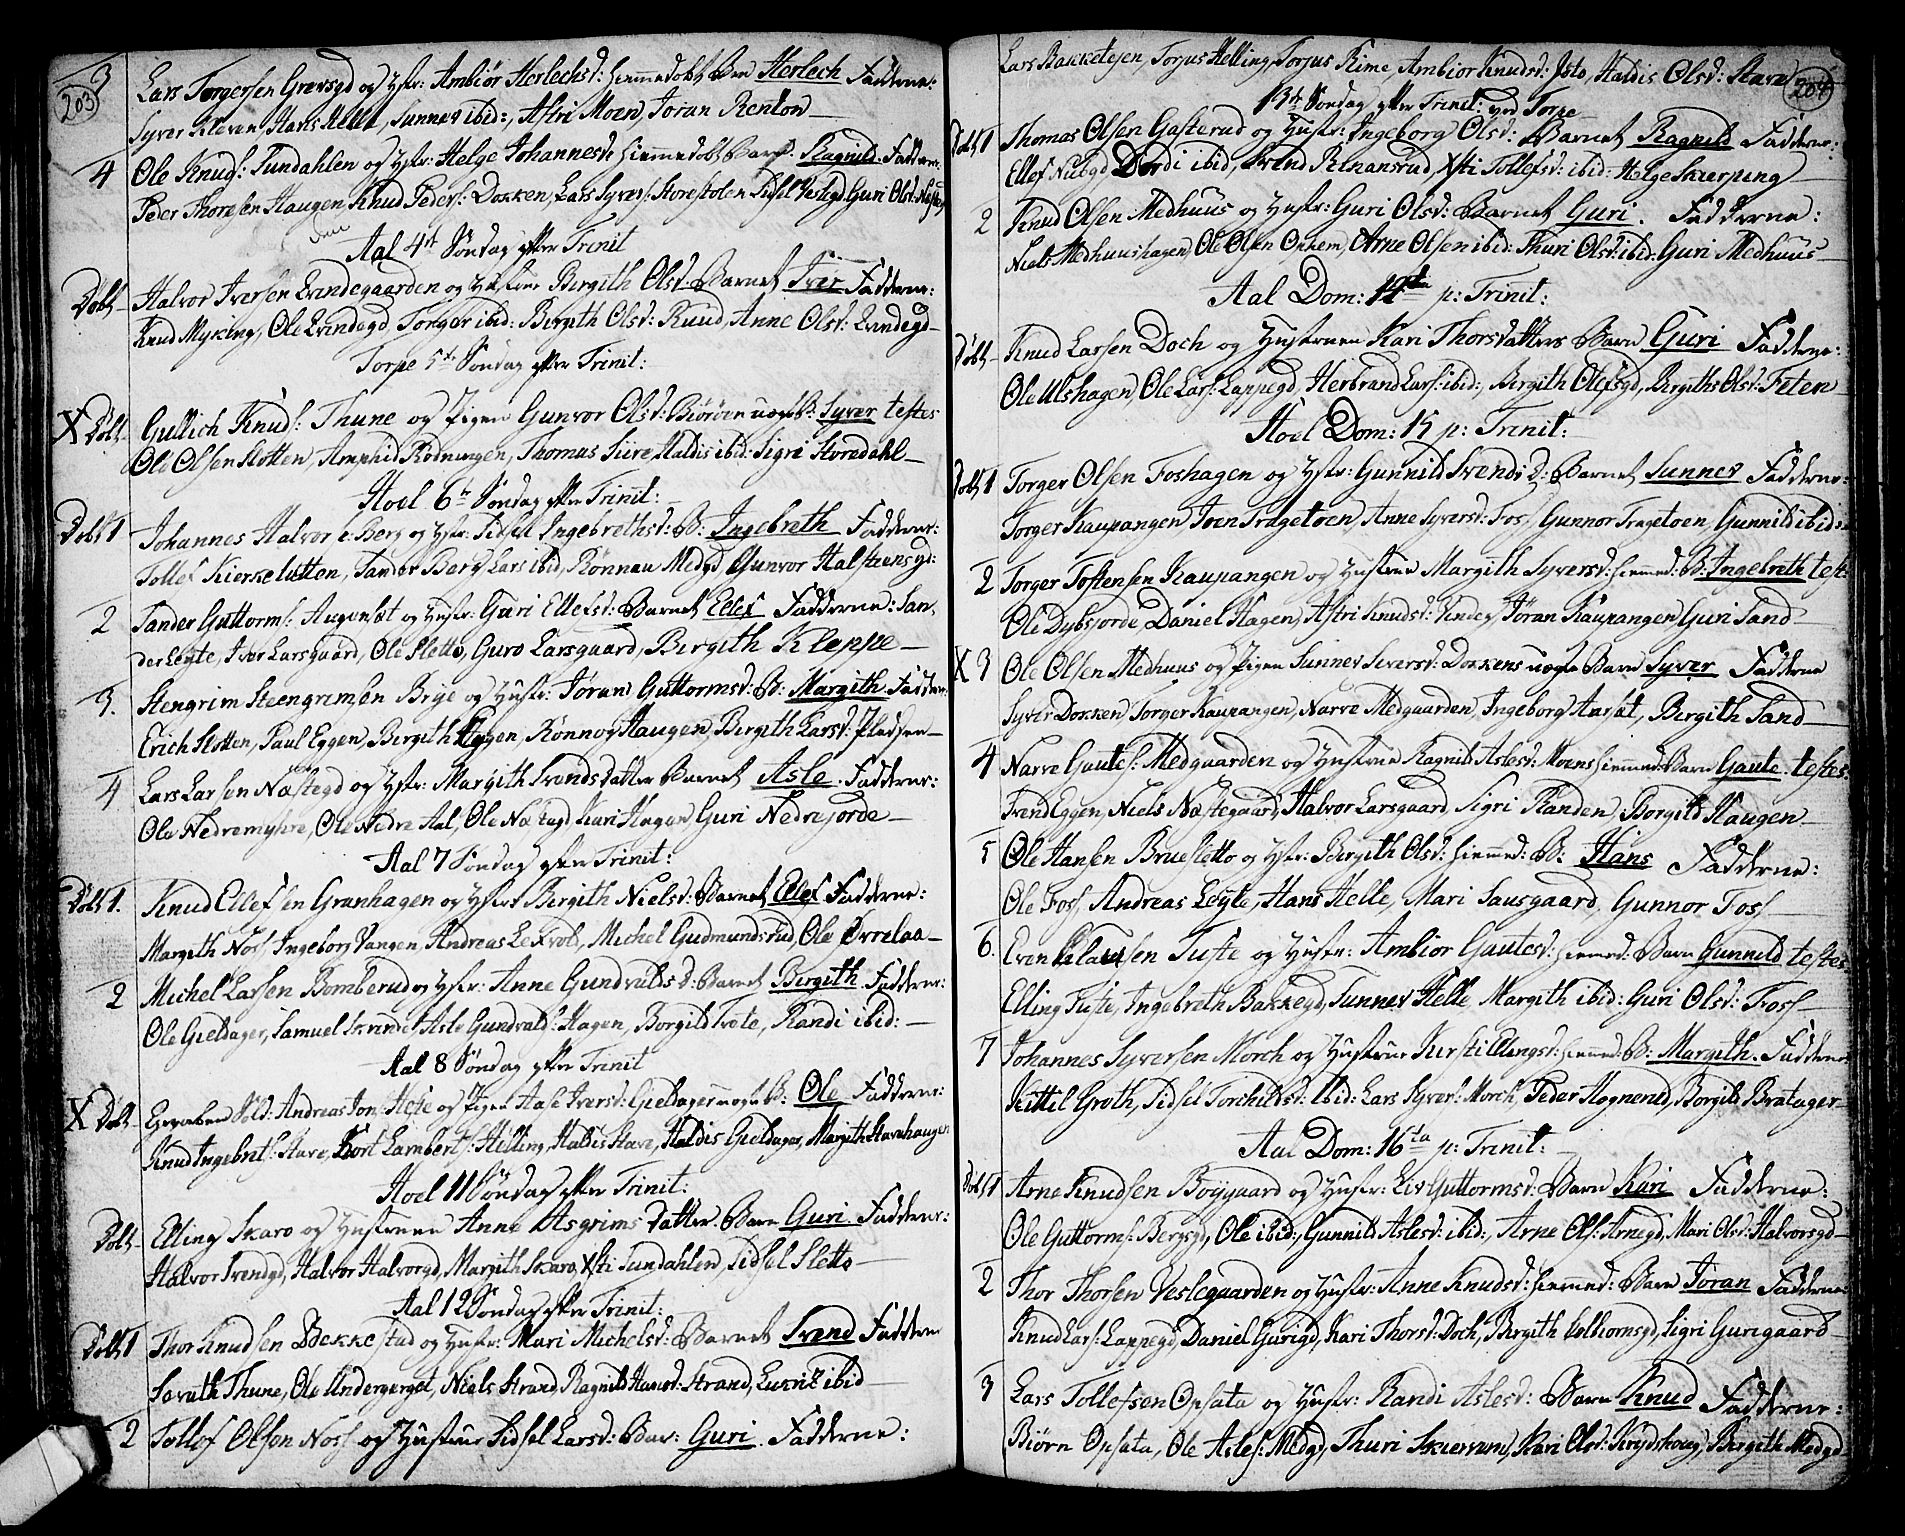 203
3 Lars Torgersen Grøvsgd og Hfr: Ambiør Herlechsd: hiemmedøbt Brn Herlech Fadderne:
Syver Kleven Hans Helle, Sunnev ibid:, Astri Moen, Jøran Renton
4 Ole Knuds: Sundahlen og Hfr: Helge Johannesd hiemmedøbt Barn. Ragnild. Faddere:
Peder Thoresen Haugen, Knud Peders: Dokken, Lars Syvers: Storestolen Sidsel Vestgd, Guri Olsd:
Aal 4de Søndag efter Trinit
Døbt Halvor Iversen Qvindegaarden og Hustrue Bergith Olsd: Barnet Iver Fadderne:
Knud Myking, Ole Qvindegd, Torger ibid: Bergith Olsd: Ruud, Anne Olsd: Qvindegd
Torpe 5te Søndag efter Trinit:
X Døbt Gullich Knuds: Thune og Pigen Gunvor Olsd: Biøröen uægte B: Syver testes
Ole Olsen Slotten, Amphid Rødningen, Thomas Siire, Haldis ibid: Sigri Storedahl
Hoel 6te Søndag efter Trinit:
Døbt 1 Johannes Halvorse: Berg og Hfr: Sidsel Ingebrethsd: B: Ingebreth Fadderne:
Tollef Kierkeslotten, Sander Berg Lars ibid, Rønnau Medgd Gunvor Halstensgd:
2 Sander Guttorms: Augonset og Hustr: Guri Ellefsd: Barnet Ellef Fadderne: San-
der Leyte, Iver Larsgaard, Ole Sletto, Guro Larsgaard, Bergith Kleppe
3. Stengrim Steengrimsen Brye og Hustr: Jøran Guttormsd: B: Margith Fadder:
Erich Slotten, Paul Eggen, Bergith Hagen, Rønnoy Haugen, Bergith Larsd: Pladsen
4 Lars Larsen Næstegd og Hfr: Margith Svendsdatter Barnet Asle. Fadderne:
Ole Nedremyhre, Ole Nedre Aal, Ole Næstegd, Kari Hagen Guri Nedrejorde
Aal 7 Søndag efter Trinit:
Døbt 1. Knud Ellefsen Granhagen og Hfr Bergith Nielsd: Barnet Ellef Fadderne:
Margith Noss, Ingeborg Vangen, Andreas Lexvold, Michel Gudmundsrud, Ole Ørrelaa
2 Michel Larsen Bomberud og Hfr: Anne Gundvaldsd: Barnet Bergith. Fadderne:
Ole Gieldager, Samuel Skrinde Asle Gundvalds: Hagen, Borgild Trote, Randi ibid:
Aal 8 Søndag efter Trinit
X Døbt Gevorben Sold: Andreas Jons: Heje og Pigen Aase Iversd: Gieldager uægte B: Ole Fadderne:
Knud Ingebrets: Stave, Bort Lamberts: Helling, Haldis Stave, Haldis Gieldager, Margith Stavehaugen
Hoel 11 Søndag efter Trinit:
Døbt Elling Skaro og Hustruen Anne Asgrims Datter Barn Guri Fadderne:
Halvor Svendgd, Halvor Halvorgd, Margith Skaro, Xsti Sundahlen, Sidsel Sletto
Aal 12 Søndag efter Trinit:
Døbt 1 Thor Knudsen Bekkestad og Hustr: Mari Michelsd: Barnet Svend Fadderne
Torath Thune, Ole Undergerget, Niels Strand, Ragnild Hansd: Strand, Lukris ibid
2 Tollef Olsen Noss og Hustrue Sidsel Larsd: Bar: Guri. Fadderne:
204
Lars Bakketejen, Torjus Helling, Torjus Rime, Ambior Knudsd: Isto, Haldis Olsd: Stave
13de Søndag efter Trinit: ved Torpe
Døbt 1 Thomas Olsen Gasterud og Hustr: Ingeborg Olsd: Barnet Ragnild Fadderne:
Ellef Nubgd Dordi ibid, Svend Renansrud, Xsti Tollefsd: ibid: Helge Skierping
2 Knud Olsen Medhuus og Hustr: Guri Olsd: Barnet Guri. Fadderne:
Niels Medhuushagen, Ole Olsen Onnem, Arne Olsen ibid: Thuri Olsd: ibid: Guri Medhuus
Aal Dom: 14ta p: Trinit:
Døbt Knud Larsen Doch og Hustruen Kari Thorsdatters Barn Guri Fadderne:
Ole Ulshagen, Ole Lars: Lappegd, Herbrand Lars: ibid:, Bergith Olefsgd, Bergiths Olsd: Feten
Hoel Dom: 15 p: Trinit:
Døbt 1 Torger Olsen Foshagen og Hfr: Gunnild Svendsd: Barnet Sunnev Fadderne:
Torger Kaupangen Joen Tragetoen, Anne Syversd: Fos, Gunnor Tragetoen, Gunnild ibid:
2 Torger Tostensen Kaupangen og Hustrue Margith Syversd: hiemmed: B: Ingebreth test:
Ole Dybsjorde, Daniel Hagen, Astri Knudsd: Vindeg, Jøran Kaupangen Guri Sand
X 3 Ole Olsen Medhuus og Pigen Sunnev Siversd: Dokkens uægte Barn Syver Fadderne
Syver Dokken Torger Kaupangen, Narve Medgaarden, Ingeborg Ansat, Bergith Sand
4 Narve Gautes: Medgaarden og Hustrue Ragnild Aslesd: Moens hiemmed: Barn Gaute. testes:
Svend Eggen, Niels Næstegaard, Halvor Larsgaard Sigri Randen, Borgild Haugen
5 Ole Hansen Bruesletto og Hfr: Bergith Olsd: hiemmed: B: Hans Fadderne:
Ole Foss, Andreas Leyte, Hans Helle, Mari Sausgaard, Gunnor Foss
6. Even Clausen Tufte og Hustr: Ambior Gautesd: hiemmed: Barn Gunnild testes:
Elling Tufte, Ingebreth Bakkegd, Sunnev Helle, Margith ibid: Guri Olsd: Foss
7 Johannes Syversen Morch og Hustrue Kirsti Ellingsd: hiemmed: B: Margith. Fadderne
Kittil Groth, Sidsel Torchildsd: ibid: Lars Syvers: Morch, Peder Hognerud, Borgild Bratager
Aal Dom: 16ta p: Trinit:
Døbt 1 Arne Knudsen Boygaard og Hustr: Liv Guttormsd: Barn Kari Fadderne:
Ole Guttorms: Bergsgd, Ole ibid:, Gunnild Aslesd: ibid:, Arne Ols: Arnegd, Mari Olsd: Halvorsgd
2 Thor Thorsen Veslegaarden og Hustr: Anne Knudsd: hiemmed: Barn Jøran Fadderne:
Knud Lars: Lappegd, Daniel Gurigd, Kari Thorsd: Doch, Bergith Colbiornsgd, Sigri Gurigaard
3 Lars Tollefsen Opsata og Hustr: Randi Aslesd: Barn Knud Fadderne:
Biørn Opsata, Ole Asles: Medgd, Thuri Skierum, Kari Olsd: Brydshoug, Bergith Medgd